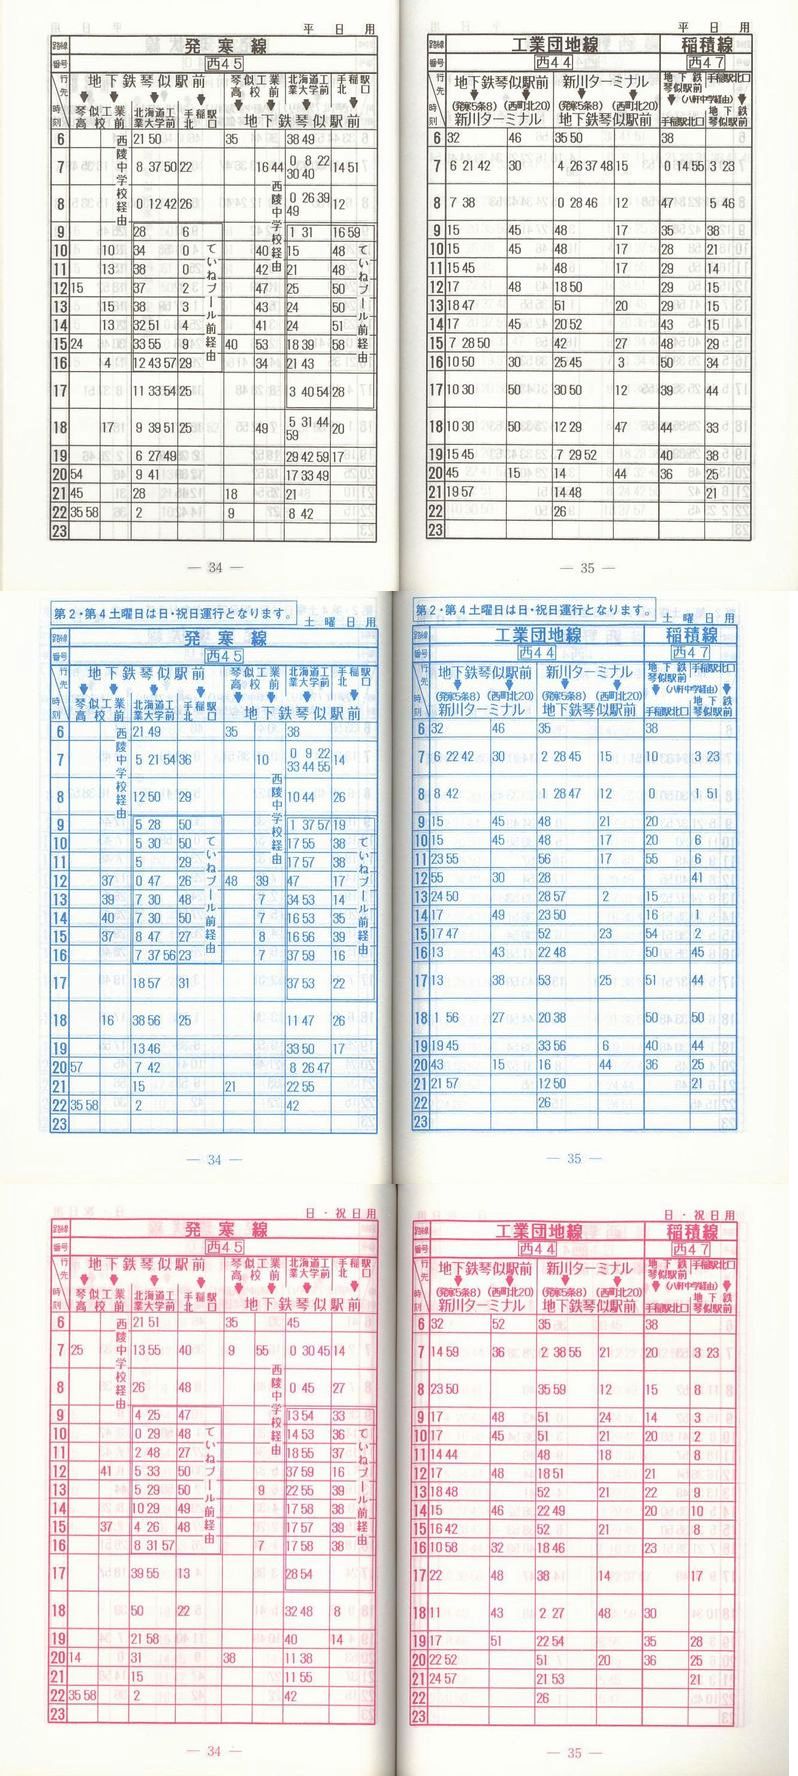 平日用
路線 発寒線
番号 西45
行先 時刻
地下鉄琴似駅前 琴似工業高校 北海道工業大学前 手稲駅北口
琴似工業高校前 北海道工業大学前 手稲駅北口 地下鉄琴似駅前
西陵中学校経由 西陵中学校経由
ていねプール前経由 ていねプール前経由
6 21 50 35 38 49
7 8 37 50 22 16 44 0 8 22 30 40 14 51
8 0 12 42 26 0 26 39 49 12
9 28 6 1 31 16 59
10 10 34 0 40 15 48
11 13 38 0 42 21 48
12 15 37 2 47 25 50
13 15 38 3 43 24 50
14 13 32 51 4 41 24 51
15 24 33 55 9 40 53 18 39 58
16 4 12 43 57 29 34 21 43
17 11 33 54 25 3 40 54 28
18 17 9 39 51 25 49 5 31 44 59 20
19 6 27 49 29 42 59 17
20 54 9 41 17 33 49
21 45 28 18 21
22 35 58 2 9 8 42
23
— 34 —
平日用
工業団地線 稲積線
西44 西47
地下鉄琴似駅前 新川ターミナル 地下鉄琴似駅前 手稲駅北口
(発寒5条8) (西町北20) (発寒5条8) (西町北20) (八軒中学経由)
新川ターミナル 地下鉄琴似駅前 手稲駅北口 地下鉄琴似駅前
6 32 46 35 50 38
7 6 21 42 30 4 26 37 48 15 0 14 55 3 23
8 7 38 0 28 46 12 47 5 46
9 15 45 48 17 35 38
10 15 45 48 17 28 21
11 15 45 48 17 29 14
12 17 48 18 50 29 15
13 18 47 51 20 29 15
14 17 45 20 52 43 15
15 7 28 50 42 27 48 29
16 10 50 30 25 45 3 50 34
17 10 30 50 30 50 12 39 44
18 10 30 50 12 29 47 44 33
19 15 45 7 29 52 40 38
20 45 15 14 44 36 25
21 19 57 14 48 21
22 26
23
— 35 —
第2・第4土曜日は日・祝日運行となります。
土曜日用
路線 発寒線
番号 西45
行先 時刻
地下鉄琴似駅前 琴似工業高校 北海道工業大学前 手稲駅北口
琴似工業高校前 北海道工業大学前 手稲駅北口 地下鉄琴似駅前
西陵中学校経由 西陵中学校経由
ていねプール前経由 ていねプール前経由
6 21 49 35 38
7 5 21 54 36 10 0 9 22 33 44 55 14
8 12 50 29 10 44 26
9 5 28 50 1 37 57 19
10 5 30 50 17 55 38
11 5 29 17 57 38
12 37 0 47 26 48 39 47 17
13 39 7 30 48 7 34 53 14
14 40 7 30 50 7 16 53 35
15 37 8 47 27 8 16 56 39
16 7 37 56 23 7 37 59 16
17 18 57 31 37 53 22
18 16 38 56 25 11 47 26
19 13 46 33 50 17
20 57 7 42 8 26 47
21 15 21 22 55
22 35 58 2 42
23
— 34 —
第2・第4土曜日は日・祝日運行となります。
土曜日用
工業団地線 稲積線
西44 西47
地下鉄琴似駅前 新川ターミナル 地下鉄琴似駅前 手稲駅北口
(発寒5条8) (西町北20) (発寒5条8) (西町北20) (八軒中学経由)
新川ターミナル 地下鉄琴似駅前 手稲駅北口 地下鉄琴似駅前
6 32 46 35 38
7 6 22 42 30 2 28 45 15 10 3 23
8 8 42 1 28 47 12 0 1 51
9 15 45 48 21 20
10 15 45 48 17 20 6
11 23 55 56 17 55 6
12 55 30 28 41
13 24 50 28 57 2 15
14 17 49 23 50 16 1
15 17 47 52 23 54 2
16 13 43 22 48 50 45
17 13 38 53 25 51 44
18 1 56 27 20 38 50 50
19 19 45 33 56 6 40 44
20 43 15 16 44 36 25
21 21 57 12 50 21
22 26
23
— 35 —
日・祝日用
路線 発寒線
番号 西45
行先 時刻
地下鉄琴似駅前 琴似工業高校 北海道工業大学前 手稲駅北口
琴似工業高校前 北海道工業大学前 手稲駅北口 地下鉄琴似駅前
西陵中学校経由 西陵中学校経由
ていねプール前経由 ていねプール前経由
6 21 51 35 45
7 25 13 55 40 9 55 0 30 45 14
8 26 48 0 45 27
9 4 25 47 13 54 33
10 0 29 48 14 53 36
11 2 48 27 18 55 37
12 41 5 33 50 37 59 16
13 5 29 50 9 22 55 39
14 10 29 49 17 58 38
15 37 4 26 48 17 57 39
16 8 31 57 7 17 58 38
17 39 55 13 28 54
18 50 22 32 48 8
19 21 58 40 14
20 14 31 38 11 38
21 15 11 55
22 35 58 2 42
23
— 34 —
日・祝日用
工業団地線 稲積線
西44 西47
地下鉄琴似駅前 新川ターミナル 地下鉄琴似駅前 手稲駅北口
(発寒5条8) (西町北20) (発寒5条8) (西町北20) (八軒中学経由)
新川ターミナル 地下鉄琴似駅前 手稲駅北口 地下鉄琴似駅前
6 32 52 35 38
7 14 59 36 2 38 55 21 20 3 23
8 23 50 35 59 12 15 8
9 17 48 51 24 14 3
10 17 45 51 21 20 2
11 14 44 48 18 8
12 17 48 18 51 21
13 18 48 52 21 22 9
14 15 46 22 49 20 10
15 16 42 52 21 8
16 10 58 32 18 46 23
17 22 48 38 14 17
18 11 43 2 27 48 30
19 17 51 22 54 35 28
20 22 52 51 20 36 25
21 24 57 21 53 21
22 26
23
— 35 —